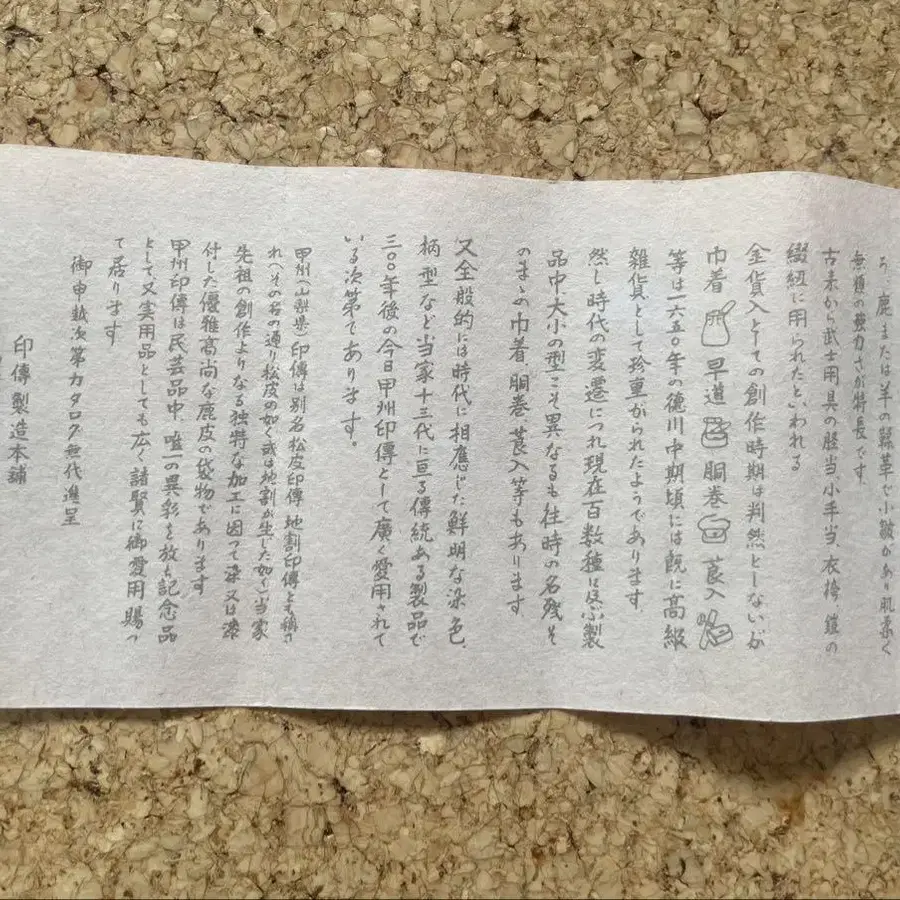 ろ、鹿または羊の鞣革で小皺があり肌柔く
無類の強力さが特長です。
古来から武士用具の脛当、小手当、衣袴、鎧の
綴紐に用られたといわれる
金貨入としての創作時期は判然としないが
巾着 早道 胴巻 莨入
等は一六五〇年の徳川中期頃には既に高級
雑貨として珍重がられたようであります。
然し時代の変遷につれ現在百数種に及ぶ製
品中大小の型こそ異なるも往時の名残そ
のまゝの巾着、胴巻、莨入等もあります
又全般的には時代に相應じた鮮明な染色、
柄型など当家十三代に亘る傳統ある製品で
三〇〇年後の今日甲州印傳として廣く愛用されて
いる次第であります。
甲州(山梨県)印傳は別名松皮印傳、地割印傳とも称さ
れ(その名の通り松皮の如く或は地割が生じた如く)当家
先祖の創作よりなる独特な加工に因って染又は漆
付した優雅高尚な鹿皮の袋物であります
甲州印傳は民芸品中、唯一の異彩を放ち記念品
として、又実用品としても広く諸賢に御愛用賜っ
て居ります
御申越次第カタログ無代進呈
印傳製造本舗